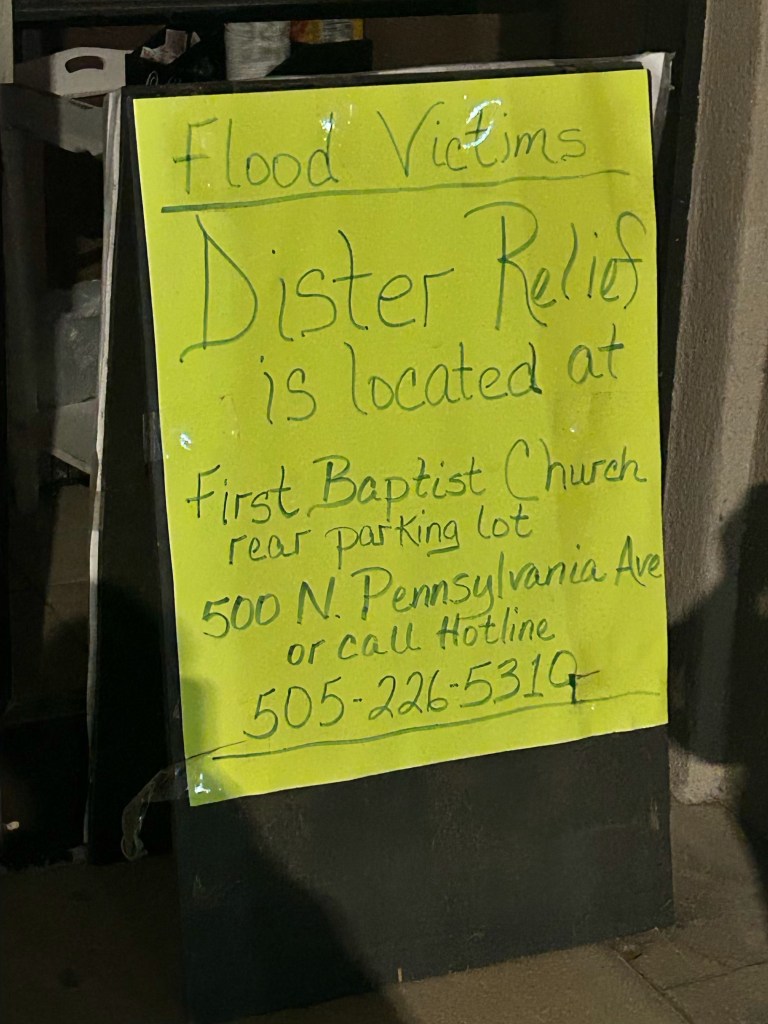 Flood Victims
Dister Relief
is located at
First Baptist Church
rear parking lot
500 N. Pennsylvania Ave
or call Hotline
505-226-5310